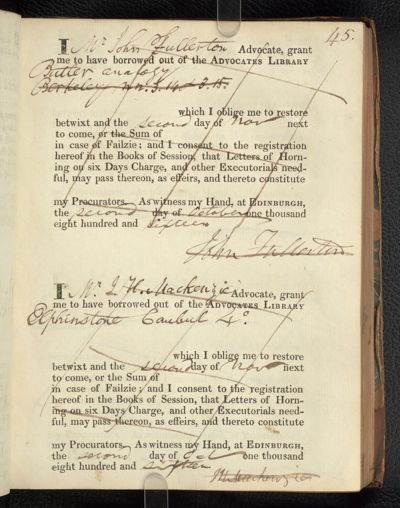 45.
I Mr John Fullerton Advocate, grant
me to have borrowed out of the ADVOCATES LIBRARY
Butler analogy
Berkeley
which I oblige me to restore
betwixt and the second day of Nov next
to come, or the Sum of
in case of Failzie; and I consent to the registration
hereof in the Books of Session, that Letters of Horn-
ing on six Days Charge, and other Executorials need-
ful, may pass thereon, as effeirs, and thereto constitute
my Procurators. As witness my Hand, at EDINBURGH,
the second day of October one thousand
eight hundred and sixteen
John Fullerton
I Mr J. H. Mackenzie Advocate, grant
me to have borrowed out of the ADVOCATES LIBRARY
Elphinstone Caubul 4o.
which I oblige me to restore
betwixt and the second day of Nov next
to come, or the Sum of
in case of Failzie; and I consent to the registration
hereof in the Books of Session, that Letters of Horn-
ing on six Days Charge, and other Executorials need-
ful, may pass thereon, as effeirs, and thereto constitute
my Procurators. As witness my Hand, at EDINBURGH,
the second day of Oct one thousand
eight hundred and sixteen
Mackenzie